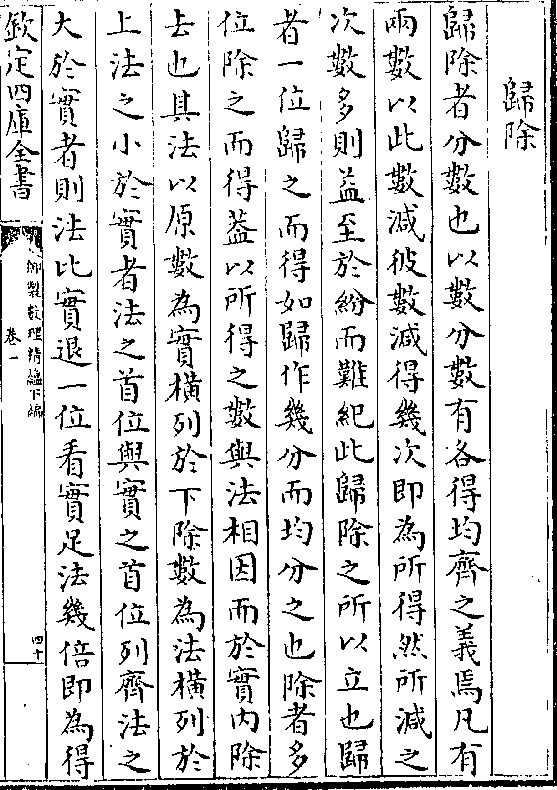 歸除
歸除者分數也以數分數有各得均齊之義焉凡有
兩數以此數減彼數減得幾次即為所得然所減之
次數多則益至於紛而難紀此歸除之所以立也歸
者一位歸之而得如歸作幾分而均分之也除者多
位除之而得葢以所得之數與法相因而於實內除
去也其法以原數為實橫列於下除數為法橫列於
上法之小於實者法之首位與實之首位列齊法之
大於實者則法比實退一位看實足法幾倍即為得
欽定四庫全書
御製數理精蘊下編
卷一
四十